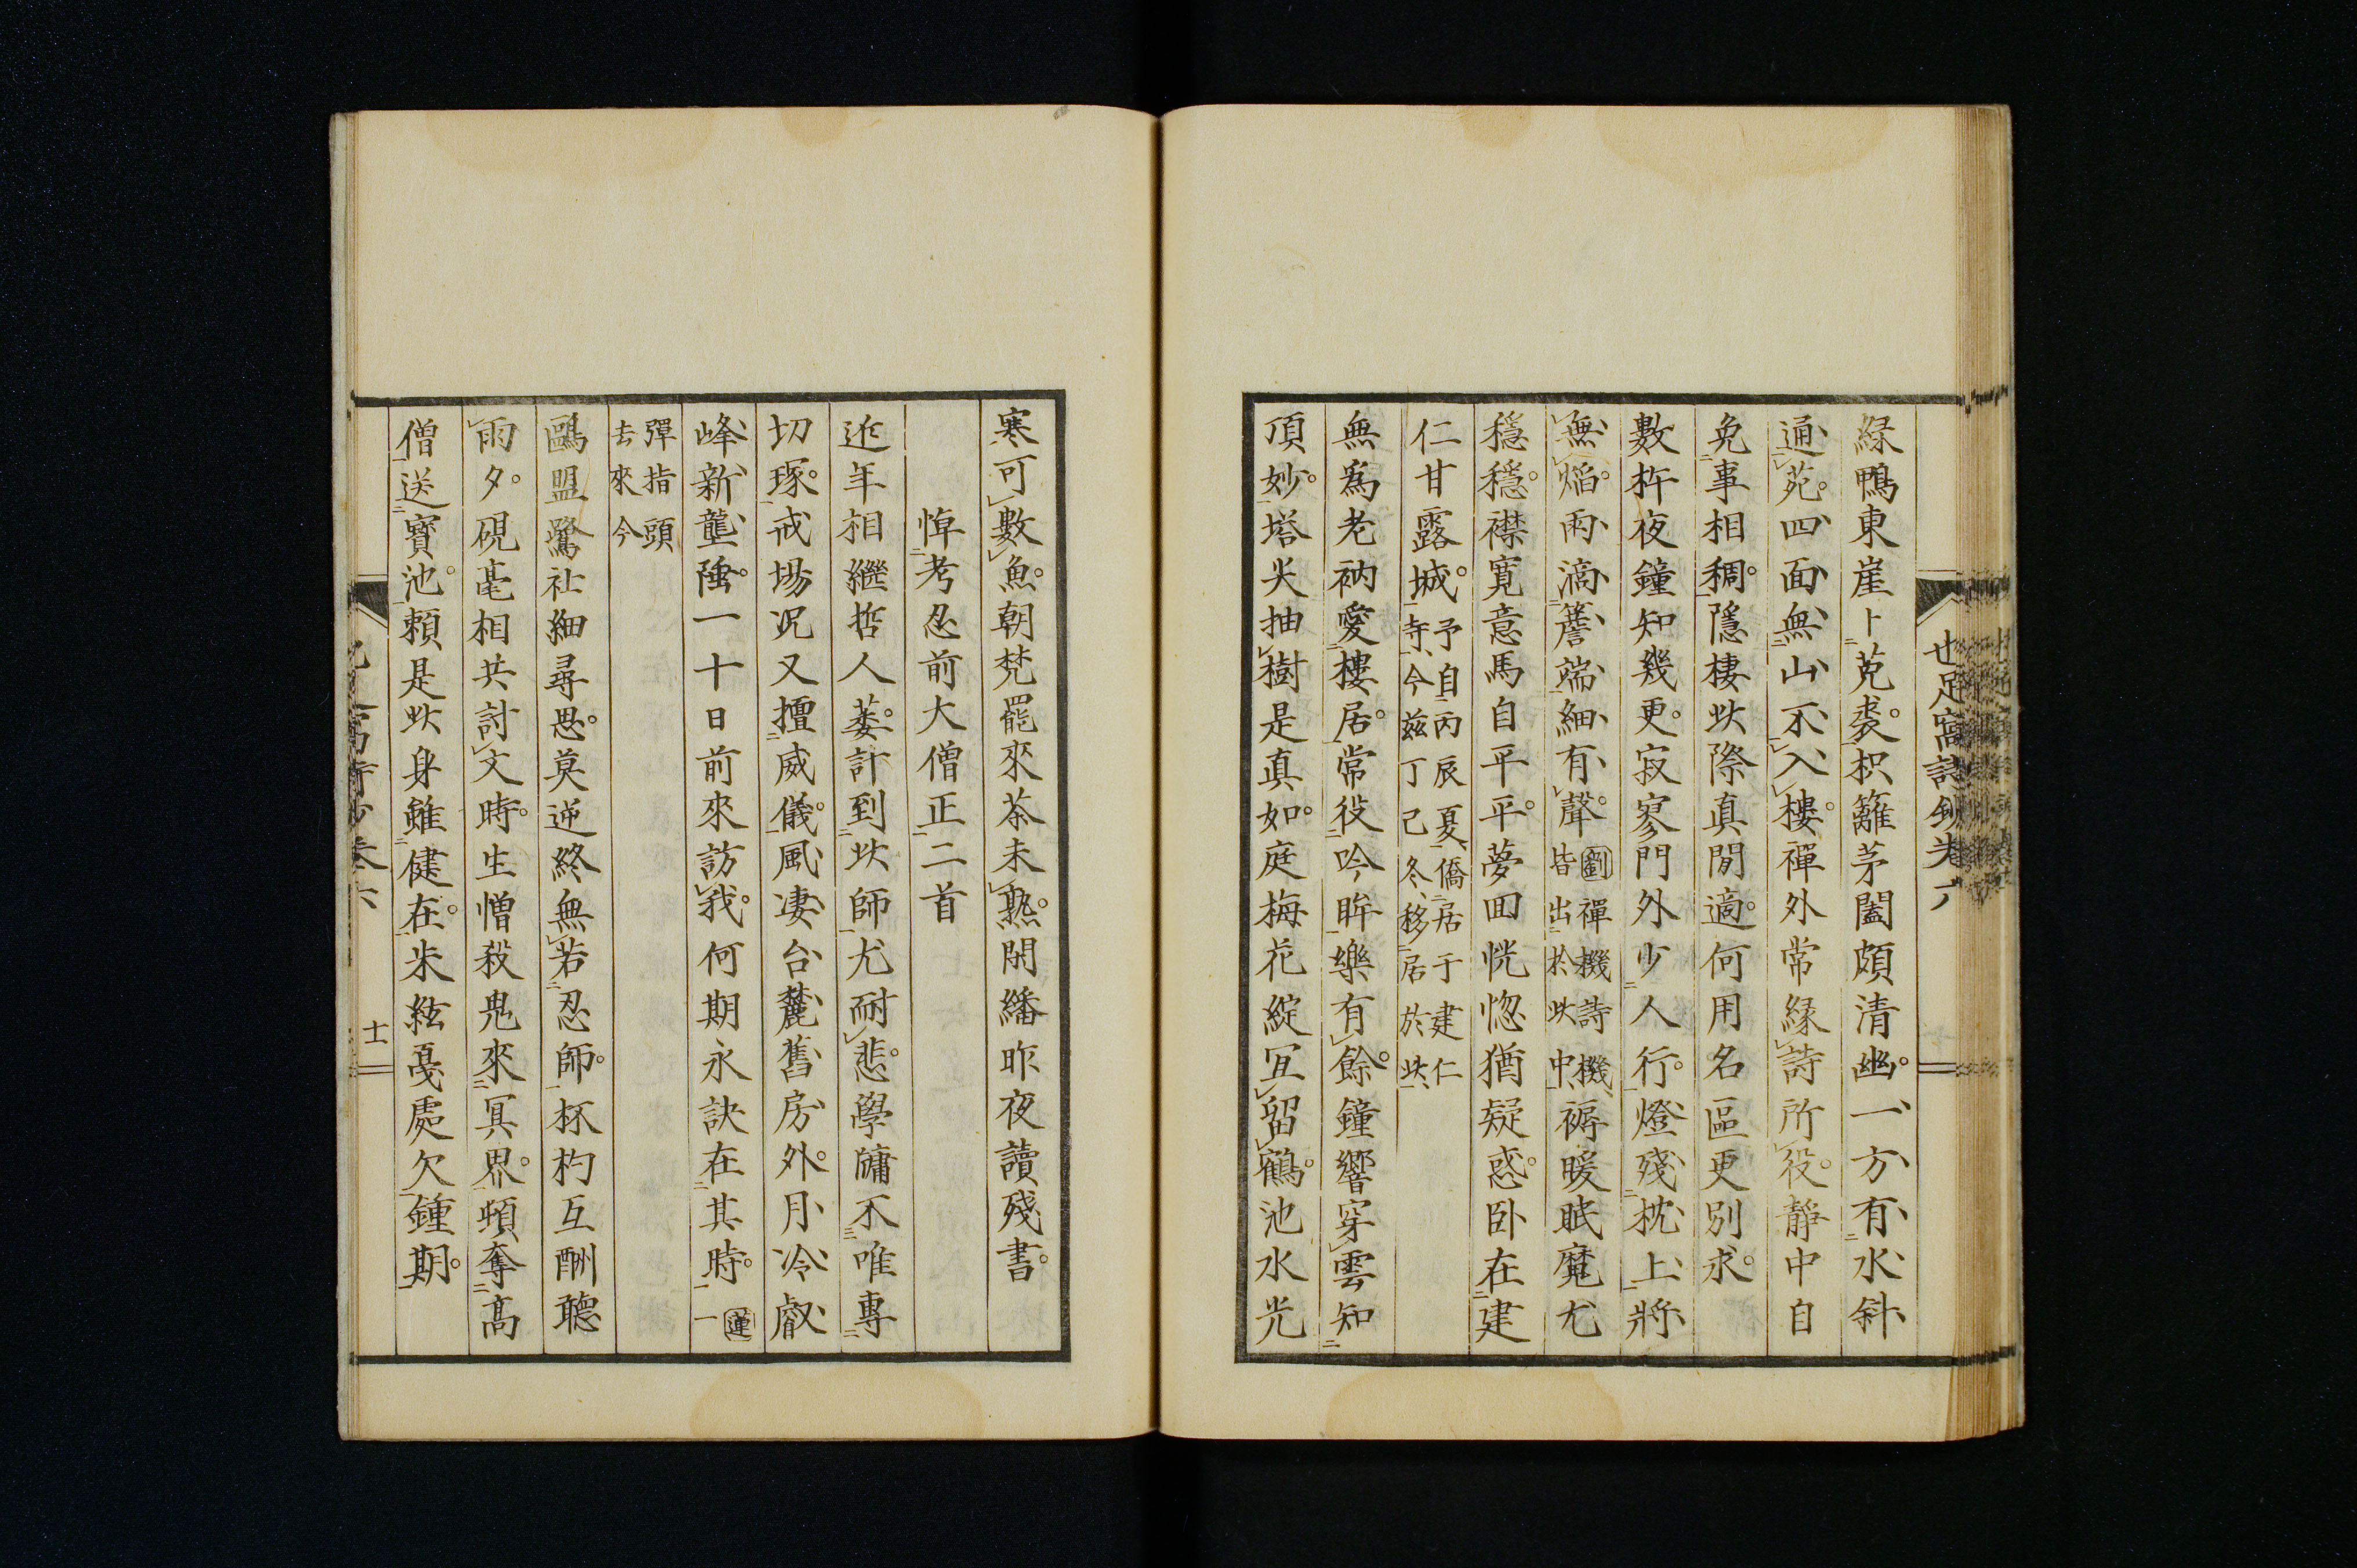 也足窩詩鈔卷六
綠鴨東崖卜菟裘。枳籬茅闔頗清幽。一方有水斜
通苑。四面無山不入樓。禪外常緣詩所役。靜中自
免事相稠。隱棲此際真閒適。何用名區更別求。
數杵夜鐘知幾更。寂寥門外少人行。燈殘枕上將
無焰。雨滴簷端細有聲。劉禪機詩機皆出於此中褥暖眠魔尤
穩穩。襟寬意馬自平平。夢回恍惚猶疑惑。臥在建
仁甘露城。予自丙辰夏僑居于建仁寺今茲丁巳冬移居於此
無為老衲愛樓居。常役吟眸樂有餘。鐘響穿雲知
頂妙。塔尖抽樹是真如。庭梅花綻宜留鶴。池水光
寒可數魚。朝梵罷來茶未熟。閑繙昨夜讀殘書。
悼考忍前大僧正二首
近年相繼哲人萎。計到此師尤耐悲。學牗不唯專
切琢。戒場況又擅威儀。風凄台麓舊房外。月冷叡
峰新壟陲。一十日前來訪我。何期永訣在其時。蓮一
彈指頭去來今
鷗盟鷺社細尋思。莫逆終無若忍師。杯杓互酬聽
雨夕。硯毫相共討文時。生憎殺鬼來冥界。頓奪高
僧送寶池。賴是此身雖健在。朱絃戛處欠鍾期。
十一